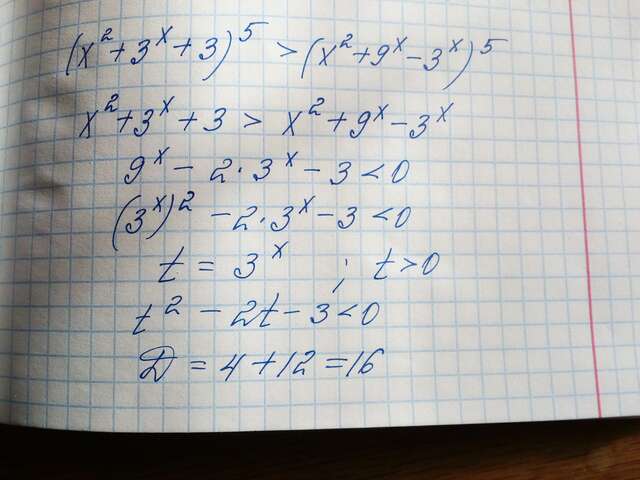 (x²+3ˣ+3)⁵ > (x²+9ˣ-3ˣ)⁵
x²+3ˣ+3 > x²+9ˣ-3ˣ
9ˣ - 2·3ˣ - 3 < 0
(3ˣ)² - 2·3ˣ - 3 < 0
t = 3ˣ ; t > 0
t² - 2t - 3 < 0
D = 4 + 12 = 16